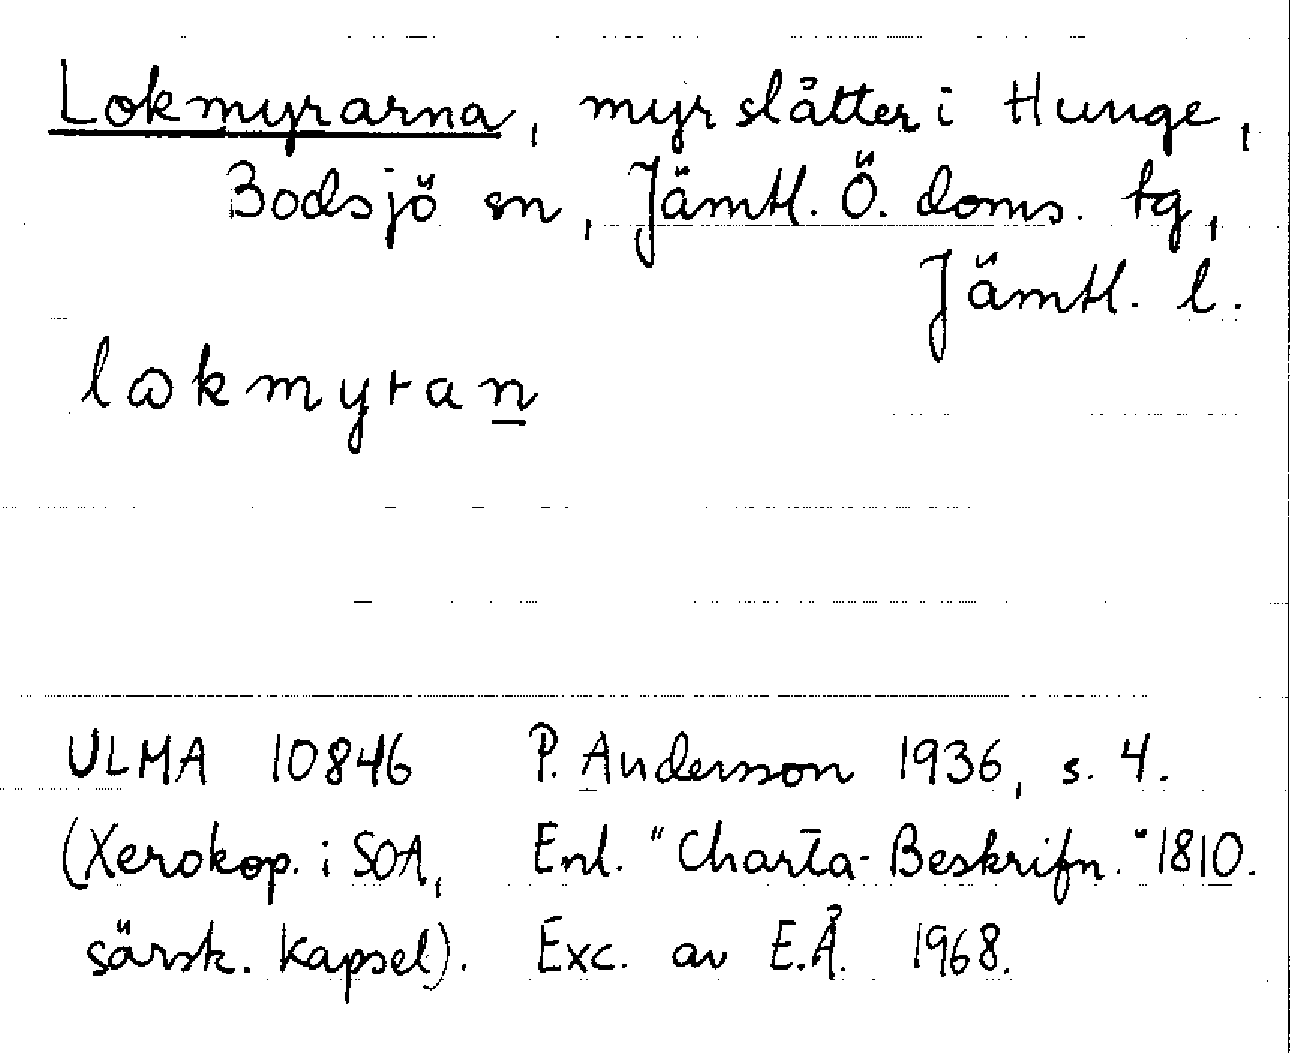 Lokmyrarna, myrslåtter i Hunge,
Bodsjö sn, Jämtl. Ö. doms. tg,
Jämtl. l.
lɷkmyran
ULMA 10846 P. Andersson 1936, s. 4.
(Xerokop. i SOA, Enl. "Charta-Beskrifn." 1810.
särsk. kapsel). Exc. av E.Å. 1968.